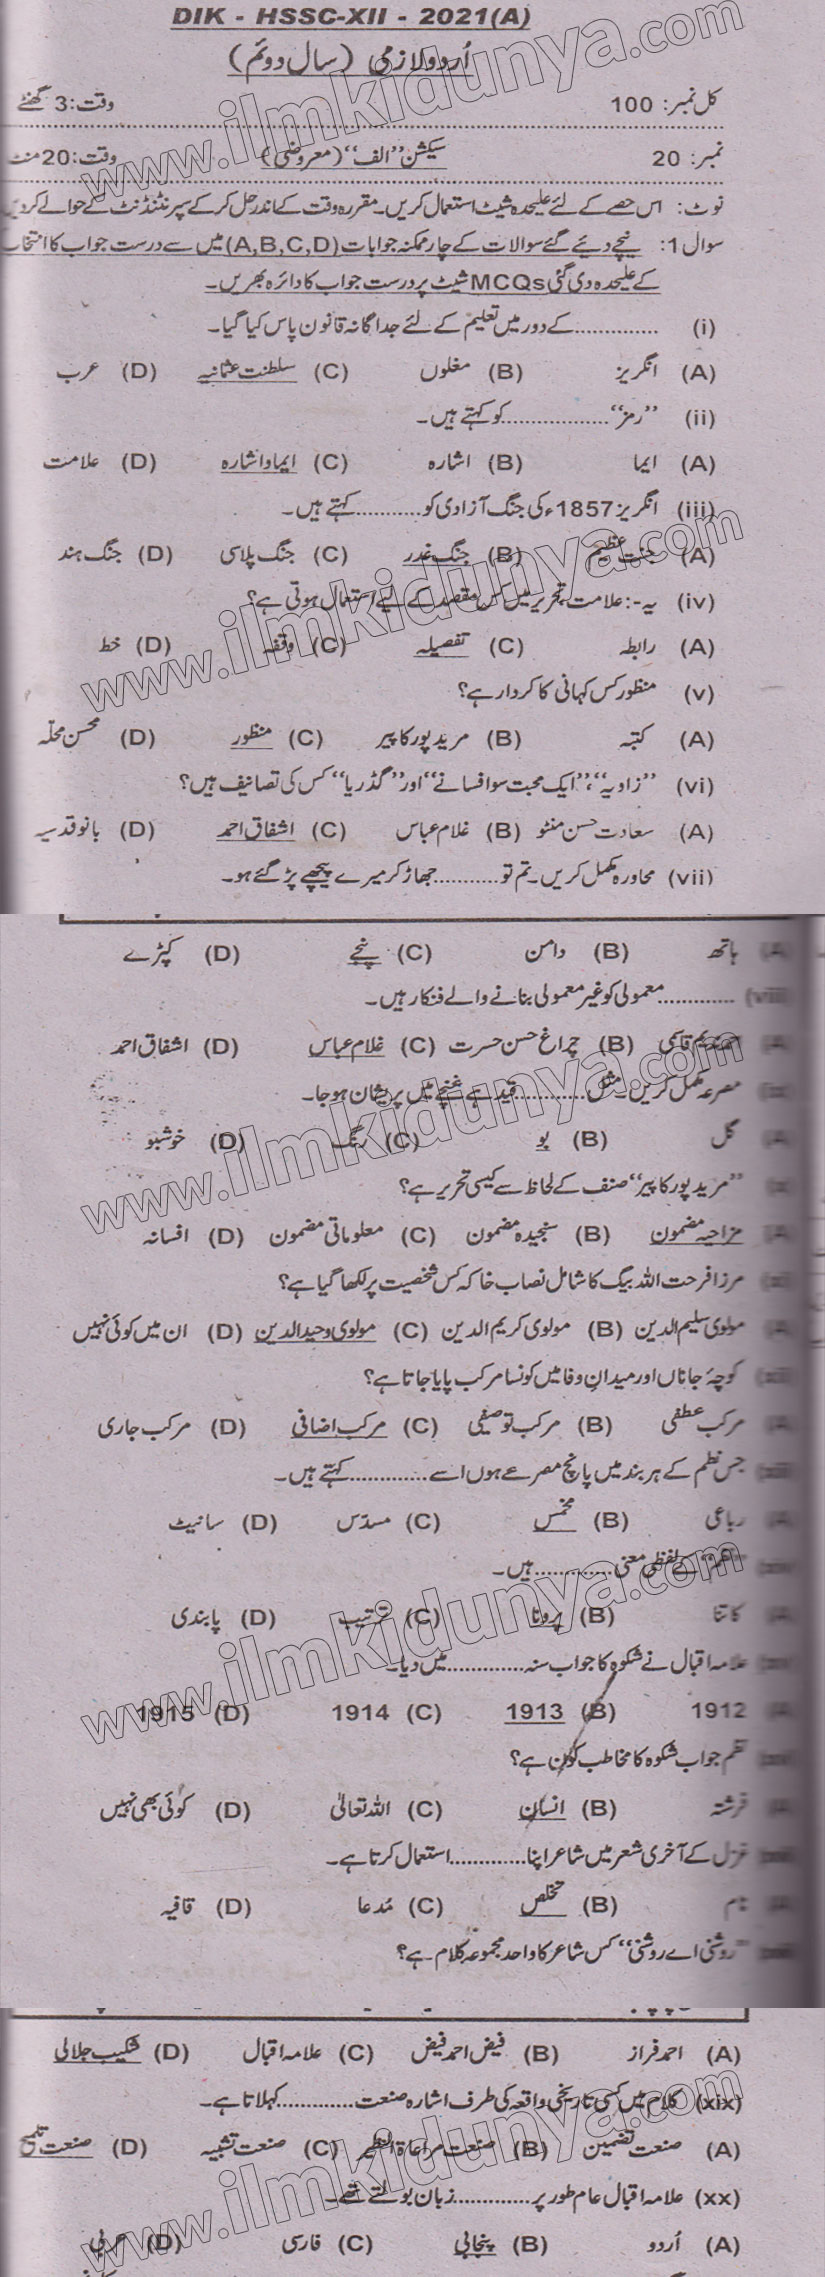 DIK - HSSC-XII - 2021(A)
اُردو لازمی (سال دوئم)
کل نمبر: 100 وقت: 3 گھنٹے
نمبر: 20 سیکشن ”الف“ (معروضی) وقت: 20 منٹ
نوٹ: اس حصے کے لئے علیحدہ شیٹ استعمال کریں۔ مقررہ وقت کے اندر حل کر کے سپرنٹنڈنٹ کے حوالے کردیں
سوال 1: نیچے دئیے گئے سوالات کے چار ممکنہ جوابات (A,B,C,D) میں سے درست جواب کا انتخاب
کے علیحدہ دی گئی MCQs شیٹ پر درست جواب کا دائرہ بھریں۔
(i) ............... کے دور میں تعلیم کے لئے جداگانہ قانون پاس کیا گیا۔
(A) انگریز (B) مغلوں (C) سلطنت عثمانیہ (D) عرب
(ii) ”رمز“ .................. کو کہتے ہیں۔
(A) ایما (B) اشارہ (C) ایما و اشارہ (D) علامت
(iii) انگریز 1857ء کی جنگ آزادی کو ........... کہتے ہیں۔
(A) جنت عظیم (B) جنگ غدر (C) جنگ پلاسی (D) جنگ ہند
(iv) یہ :- علامت تحریر میں کس مقصد کے لیے استعمال ہوتی ہے؟
(A) رابطہ (C) تفصیلہ (C) وقفہ (D) خط
(v) منظور کس کہانی کا کردار ہے؟
(A) کتبہ (B) مرید پور کا پیر (C) منظور (D) محسن محلّہ
(vi) ”زاویہ“، ”ایک محبت سو افسانے“ اور ”گڈریا“ کس کی تصانیف ہیں؟
(A) سعادت حسن منٹو (B) غلام عباس (C) اشفاق احمد (D) بانو قدسیہ
(vii) محاورہ مکمل کریں۔ تم تو ........... جھاڑ کر میرے پیچھے پڑ گئے ہو۔
(A) ہاتھ (B) دامن (C) پنجے (D) کپڑے
(viii) ............. معمولی کو غیر معمولی بنانے والے فنکار ہیں۔
(A) احمد ندیم قاسمی (B) چراغ حسن حسرت (C) غلام عباس (D) اشفاق احمد
(ix) مصرعہ مکمل کریں۔ مثل ............ قید ہے غنچے میں پریشان ہوجا۔
(A) گل (B) بو (C) رنگ (D) خوشبو
(x) ”مرید پور کا پیر“ صنف کے لحاظ سے کیسی تحریر ہے؟
(A) مزاحیہ مضمون (B) سنجیدہ مضمون (C) معلوماتی مضمون (D) افسانہ
(xi) مرزا فرحت اللہ بیگ کا شامل نصاب خاکہ کس شخصیت پر لکھا گیا ہے؟
(A) مولوی سلیم الدین (B) مولوی کریم الدین (C) مولوی وحید الدین (D) ان میں کوئی نہیں
(xii) کوچۂ جاناں اور میدانِ وفا میں کونسا مرکب پایا جاتا ہے؟
(A) مرکب عطفی (B) مرکب توصیفی (C) مرکب اضافی (D) مرکب جاری
(xiii) جس نظم کے ہر بند میں پانچ مصرعے ہوں اسے ............. کہتے ہیں۔
(A) رباعی (B) مخمس (C) مسدّس (D) سانیٹ
(xiv) ”نظم“ کے لفظی معنی ............. ہیں۔
(A) کاتنا (B) پرونا (C) ترتیب (D) پابندی
(xv) علامہ اقبال نے شکوہ کا جواب سنہ ............. میں دیا۔
(A) 1912 (B) 1913 (C) 1914 (D) 1915
(xvi) نظم جواب شکوہ کا مخاطب کون ہے؟
(A) فرشتہ (B) انسان (C) اللہ تعالیٰ (D) کوئی بھی نہیں
(xvii) غزل کے آخری شعر میں شاعر اپنا ............. استعمال کرتا ہے۔
(A) نام (B) تخلص (C) مُدعا (D) قافیہ
(xviii) ”روشنی اے روشنی“ کس شاعر کا واحد مجموعہ کلام ہے؟
(A) احمد فراز (B) فیض احمد فیض (C) علامہ اقبال (D) شکیب جلالی
(xix) کلام میں کسی تاریخی واقعہ کی طرف اشارہ صنعت ............. کہلاتا ہے۔
(A) صنعت تضمین (B) صنعت مراعاۃ النظیر (C) صنعت تشبیہ (D) صنعت تلمیح
(xx) علامہ اقبال عام طور پر ............. زبان بولتے تھے۔
(A) اُردو (B) پنجابی (C) فارسی (D) عربی
www.ilmkidunya.com
www.ilmkidunya.com
www.ilmkidunya.com
www.ilmkidunya.com
www.ilmkidunya.com